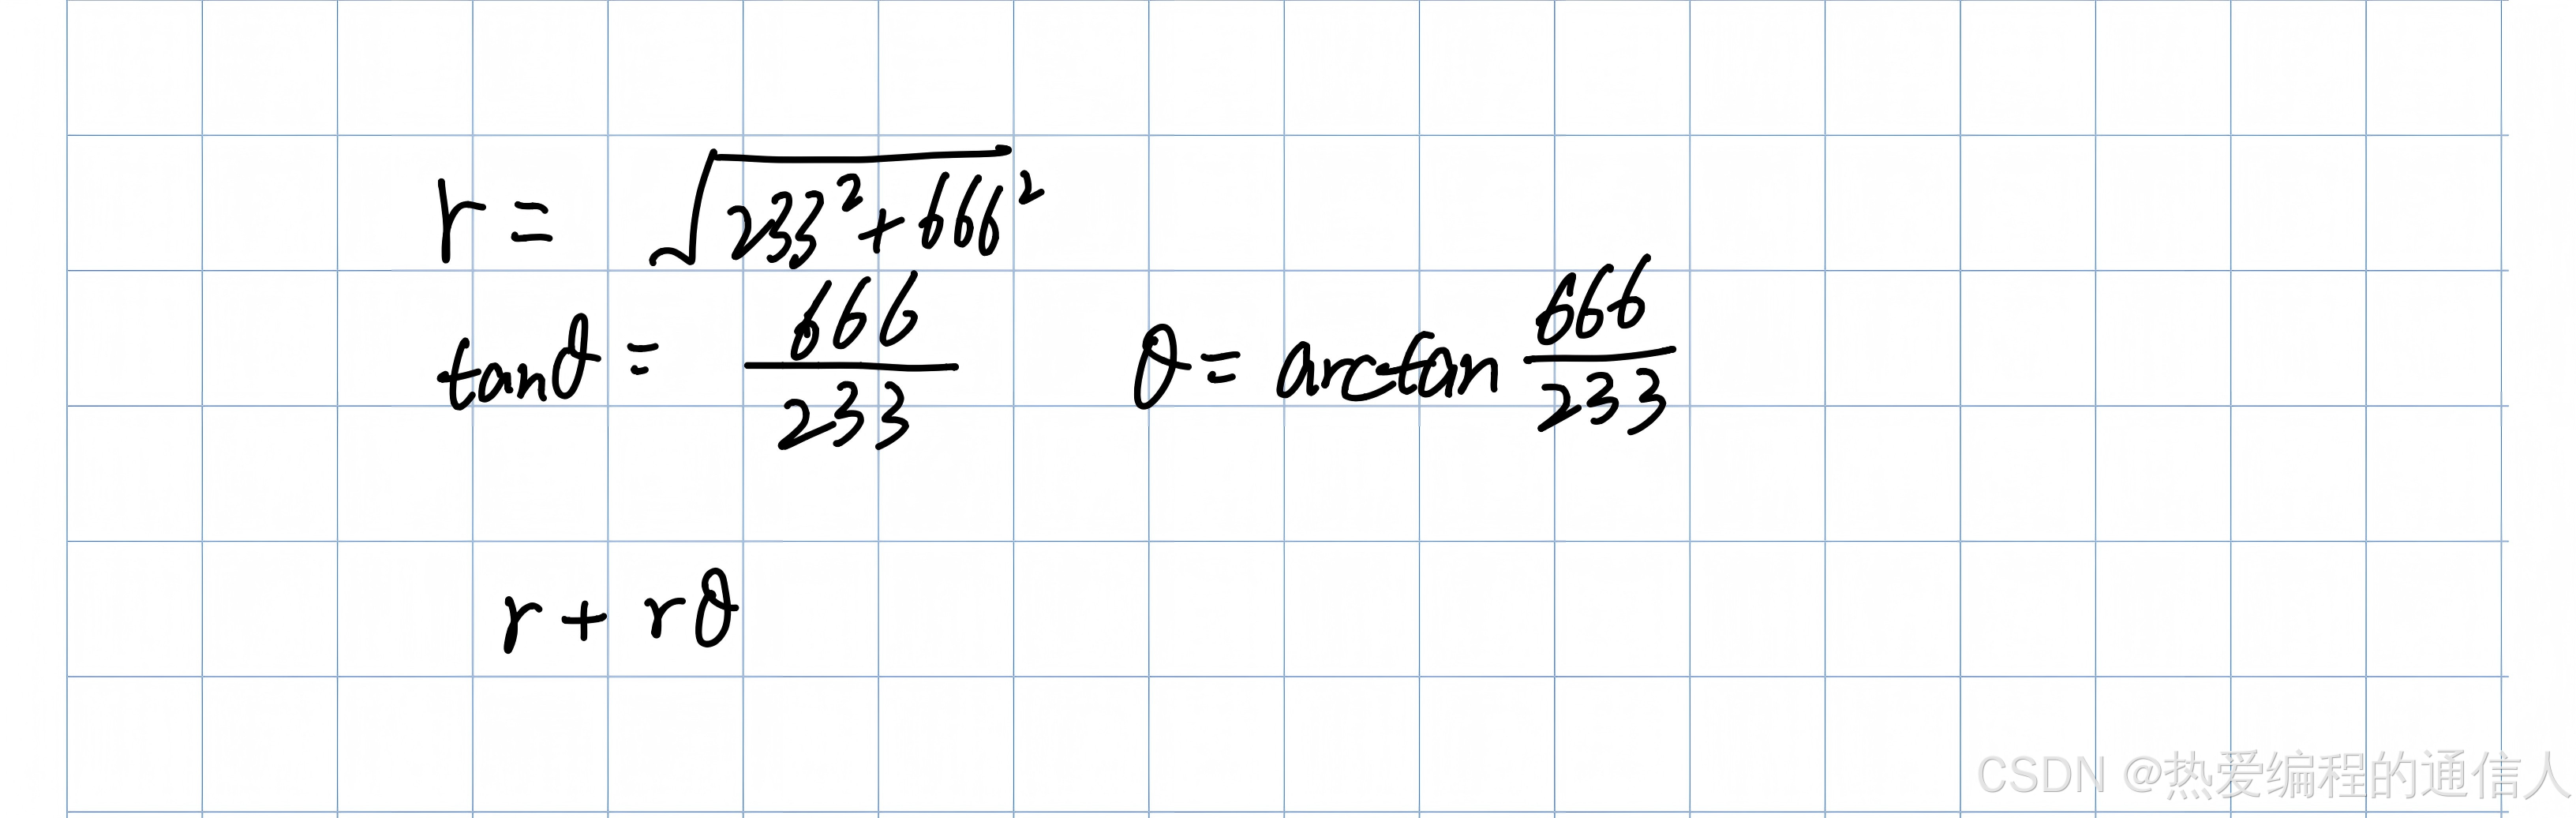 r = √(233²+666²)
tanθ = 666/233 θ = arctan 666/233
r + rθ
CSDN @热爱编程的通信人